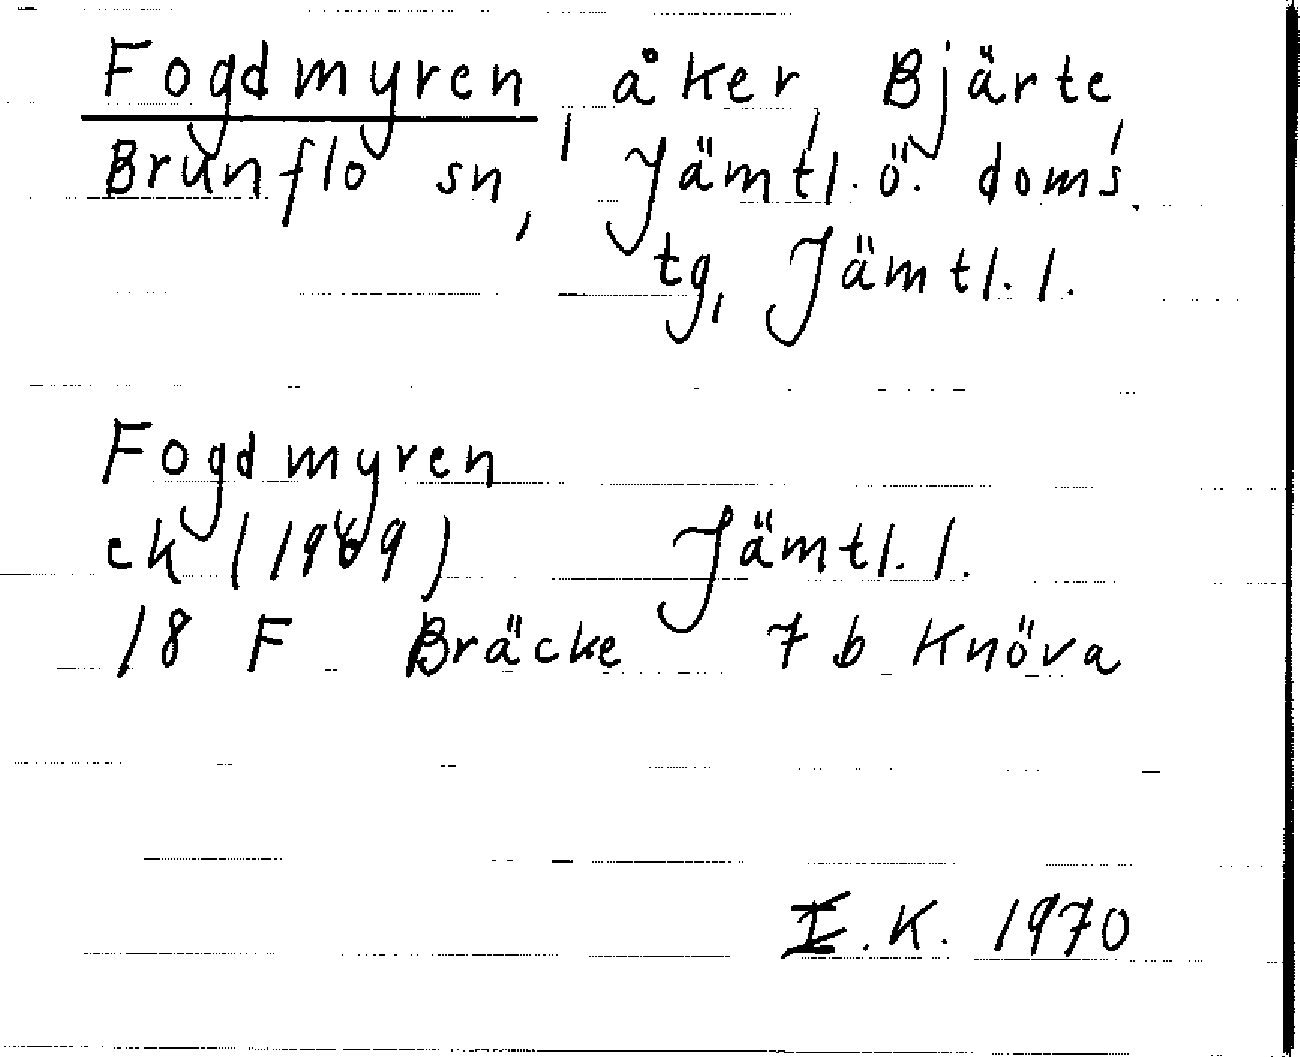 Fogdmyren, åker, Bjärte,
Brunflo sn, Jämtl. ö. doms.
tg, Jämtl. l.
Fogdmyren
ek (1969) Jämtl. l.
18 F Bräcke 7 b Knöva
K. 1970